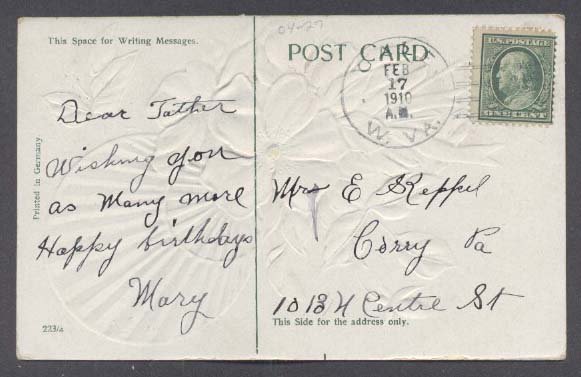 04-27
This Space for Writing Messages.
POST CARD
FEB
17
1910
A.M.
W. VA.
U.S. POSTAGE
ONE CENT
Dear Father
Wishing you
as Many more
Happy birthdays
Mary
Printed in Germany
223/4
Mrs E Keppel
Corry Pa
Centre St
This Side for the address only.